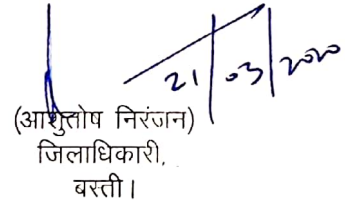 21/03/2020
(आशुतोष निरंजन)
जिलाधिकारी,
बस्ती।